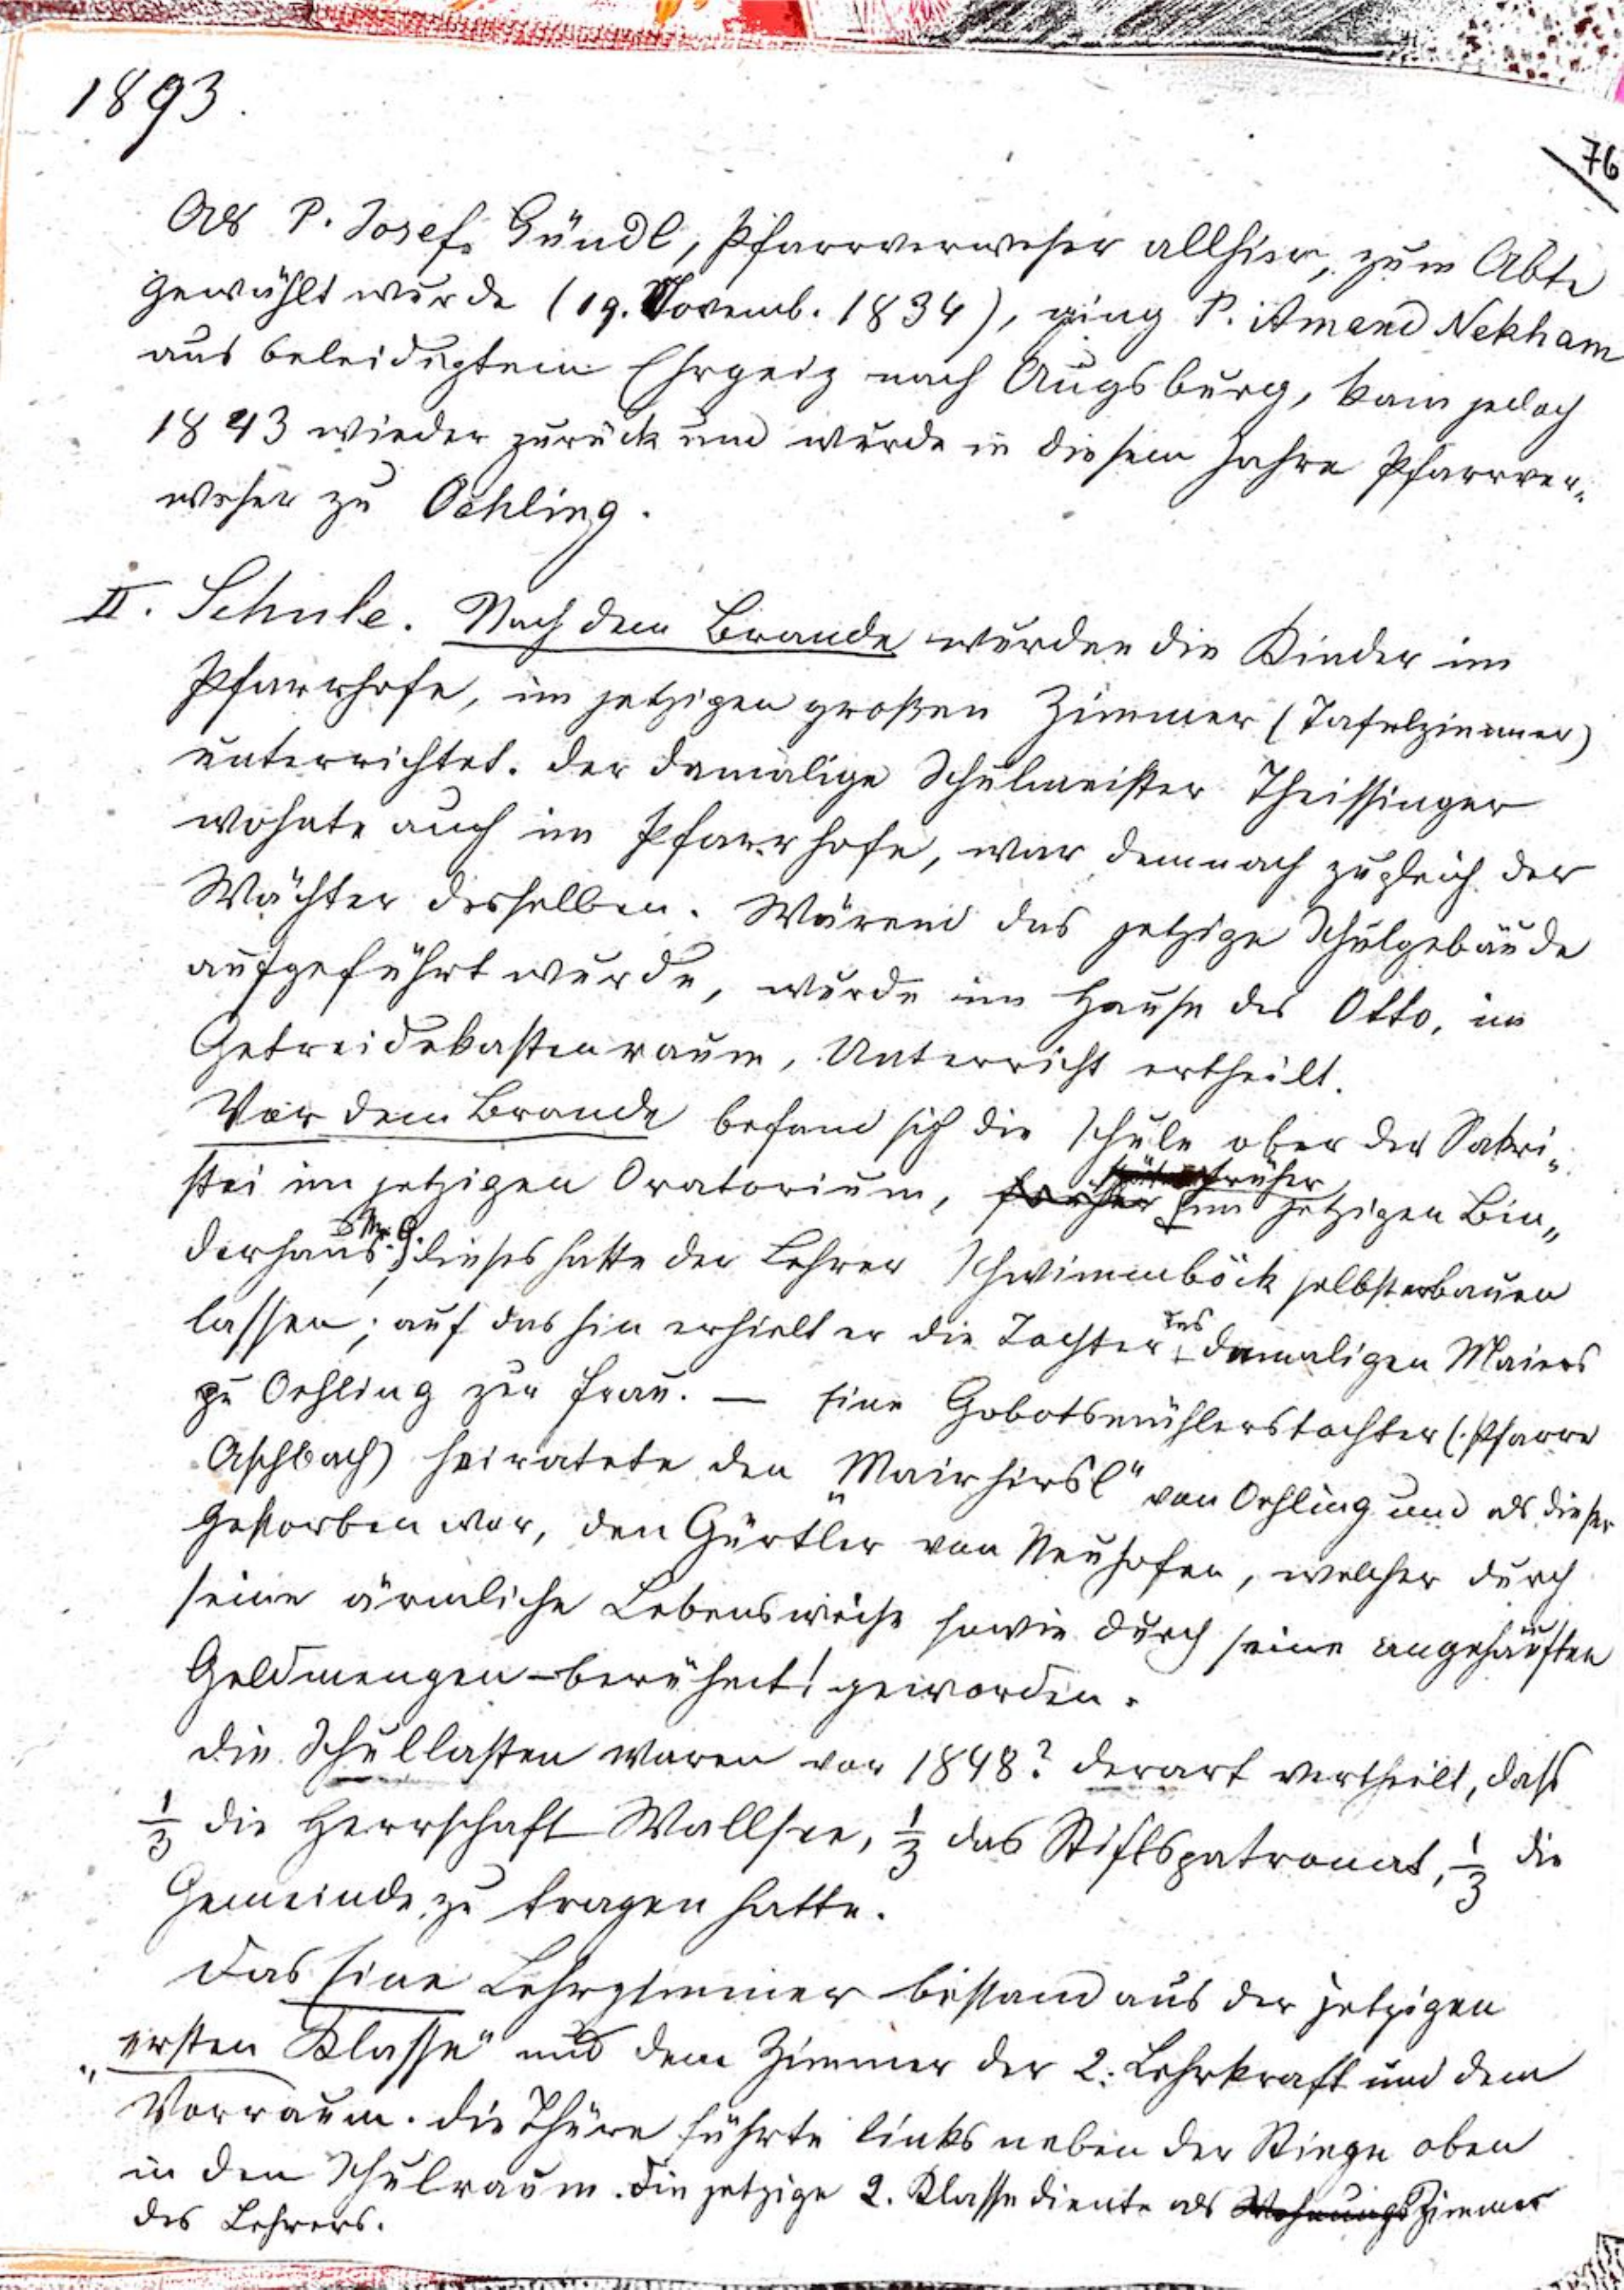 1893.
76
Als P. Josef Gündl, Pfarrverweser allhier, zum Abte
gewählt wurde (19. Novemb. 1834), ging P. Amand Nekham
aus beleidigtem Ehrgeiz nach Augsburg, kam jedoch
1843 wieder zurück und wurde in diesem Jahre Pfarrver-
weser zu Oehling.
II. Schule. Nach dem Brande wurden die Kinder im
Pfarrhofe, im jetzigen großen Zimmer (Tafelzimmer)
unterrichtet. Der damalige Schulmeister Theissinger
wohnte auch im Pfarrhofe, war demnach zugleich der
Wächter desselben. Wärend das jetzige Schulgebäude
aufgeführt wurde, wurde im Hause des Otto, im
Getreidekastenraum, Unterricht ertheilt.
Vor dem Brande befand sich die Schule ober der Sakri-
stei im jetzigen Oratorium, früher im jetzigen Bin-
derhaus; dieses hatte der Lehrer Schwimmböck selbst erbauen
lassen; auf das hin erhielt er die Tochter des damaligen Maiers
zu Oehling zur Frau. — Eine Gobotsmühlerstochter (Pfarre
Aschbach) heiratete den „Mairhirsl" von Oehling und als dieser
gestorben war, den Gürtler von Neuhofen, welcher durch
seine ärmliche Lebensweise sowie durch seine angehäuften
Geldmengen – berühmt! geworden.
Die Schullasten waren vor 1848? derart vertheilt, daß
1/3 die Herrschaft Wallsee, 1/3 das Stiftspatronat, 1/3 die
Gemeinde zu tragen hatte.
Das Eine Lehrzimmer bestand aus der jetzigen
„ersten Klasse" und dem Zimmer der 2. Lehrkraft und dem
Vorraum. Die Thüre führte links neben der Stiege oben
in den Schulraum. Die jetzige 2. Klasse diente als Wohnungs Zimmer
des Lehrers.